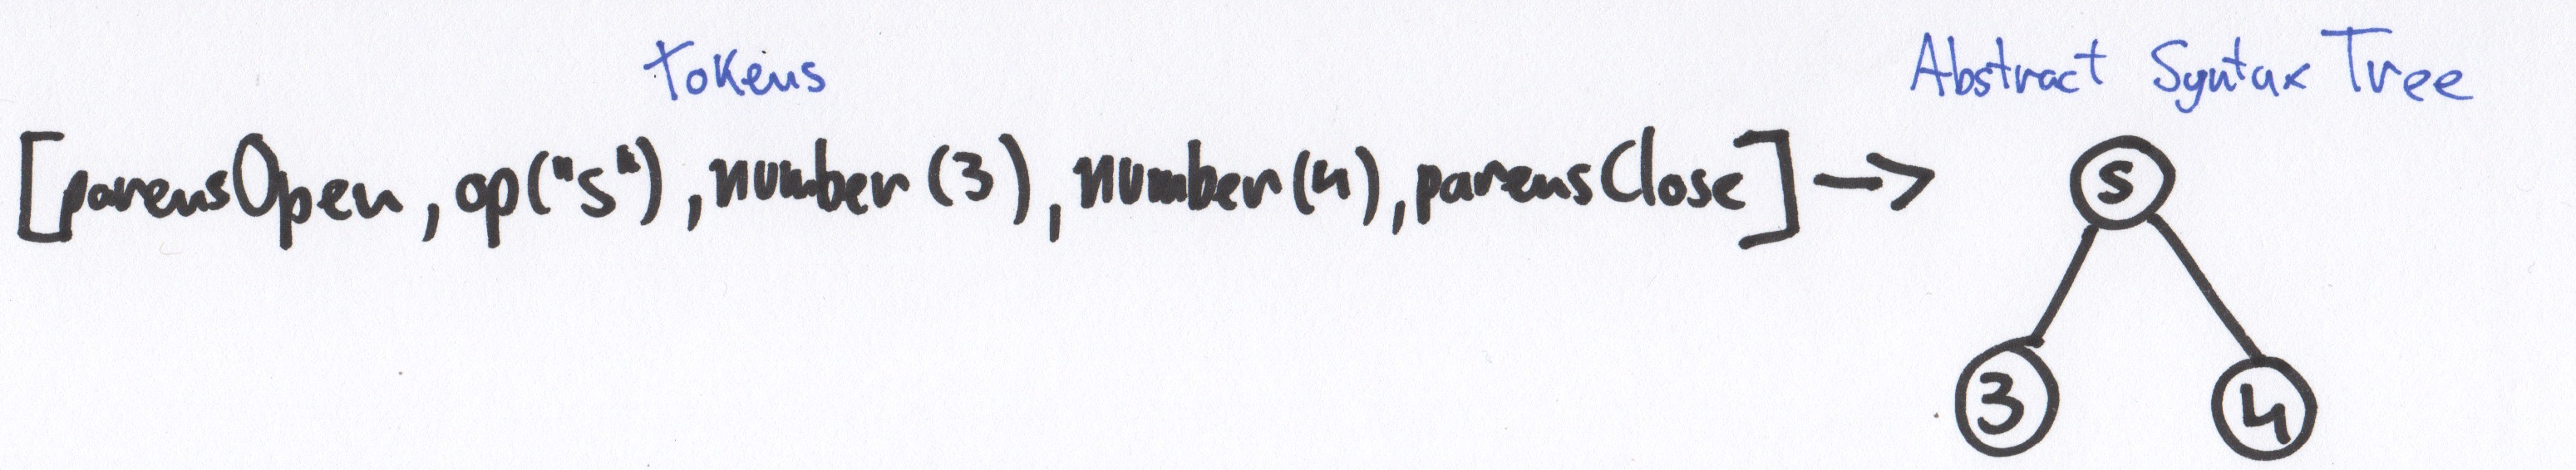 Tokens
Abstract Syntax Tree
[parensOpen, op("s"), number(3), number(4), parensClose] ->
s
3
4